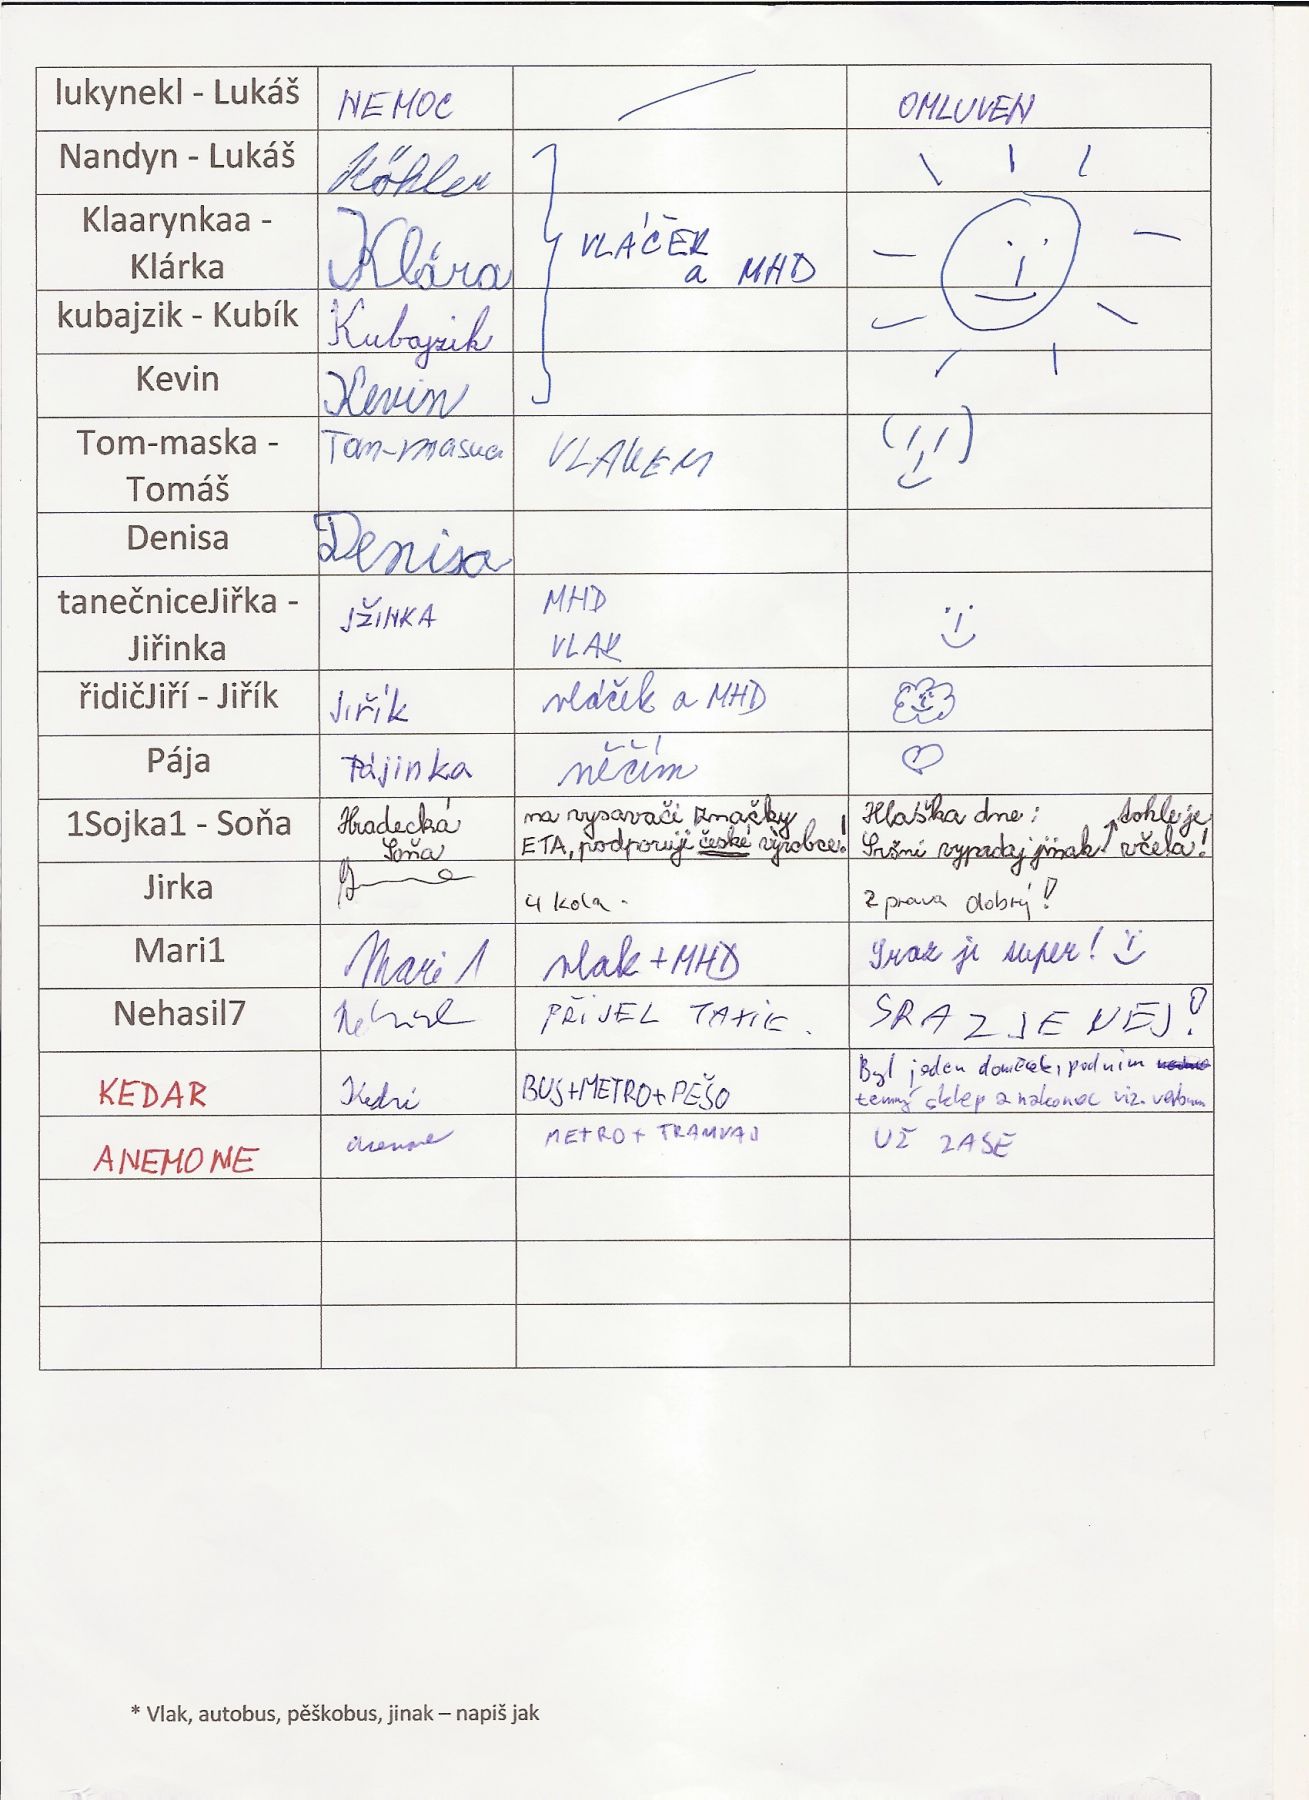 lukynekl - Lukáš NEMOC OMLUVEN
Nandyn - Lukáš Köhler
Klaarynkaa - Klára VLÁČEK
Klárka a MHD
kubajzik - Kubík Kubajzik
Kevin Kevin
Tom-maska - Tom-maska VLAKEM
Tomáš
Denisa Denisa
tanečniceJiřka - JŽINKA MHD
Jiřinka VLAK
řidičJiří - Jiřík Jiřík vláček a MHD
Pája Pájinka něčím
1Sojka1 - Soňa Hradecká na vysavači značky Hláška dne: tohle je
Soňa ETA, podporuji české výrobce! Sršni vypadaj jinak včela!
Jirka 4 kola. Zprava dobrý!
Mari1 Mari 1 vlak + MHD Sraz je super!
Nehasil7 Nehasil PŘIJEL TAXIK. SRAZ JE NEJ!
KEDAR Kedri BUS+METRO+PĚŠO Byl jeden domeček, pod ním
temný sklep a nakonec viz.
ANEMONE METRO + TRAMVAJ UŽ ZASE
* Vlak, autobus, pěškobus, jinak – napiš jak